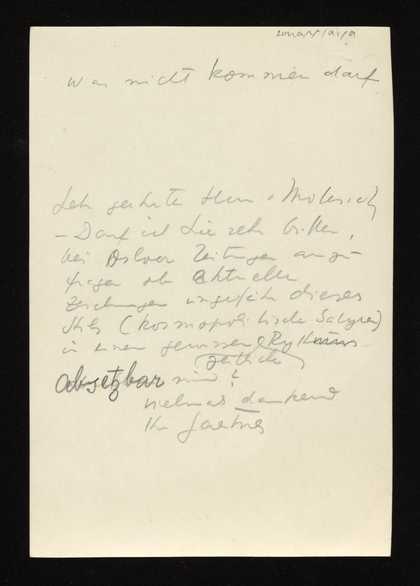 was nicht kommen darf
Sehr geehrter Herr
– Darf ich Sie sehr bitten,
bei Osloer Zeitungen anzu-
fragen ob Aktuelle
Zeichnungen ungefähr dieses
Stils (kosmopolitische Satyre)
in einem gewissen
absetzbar sind?
vielmals dankend
Ihr